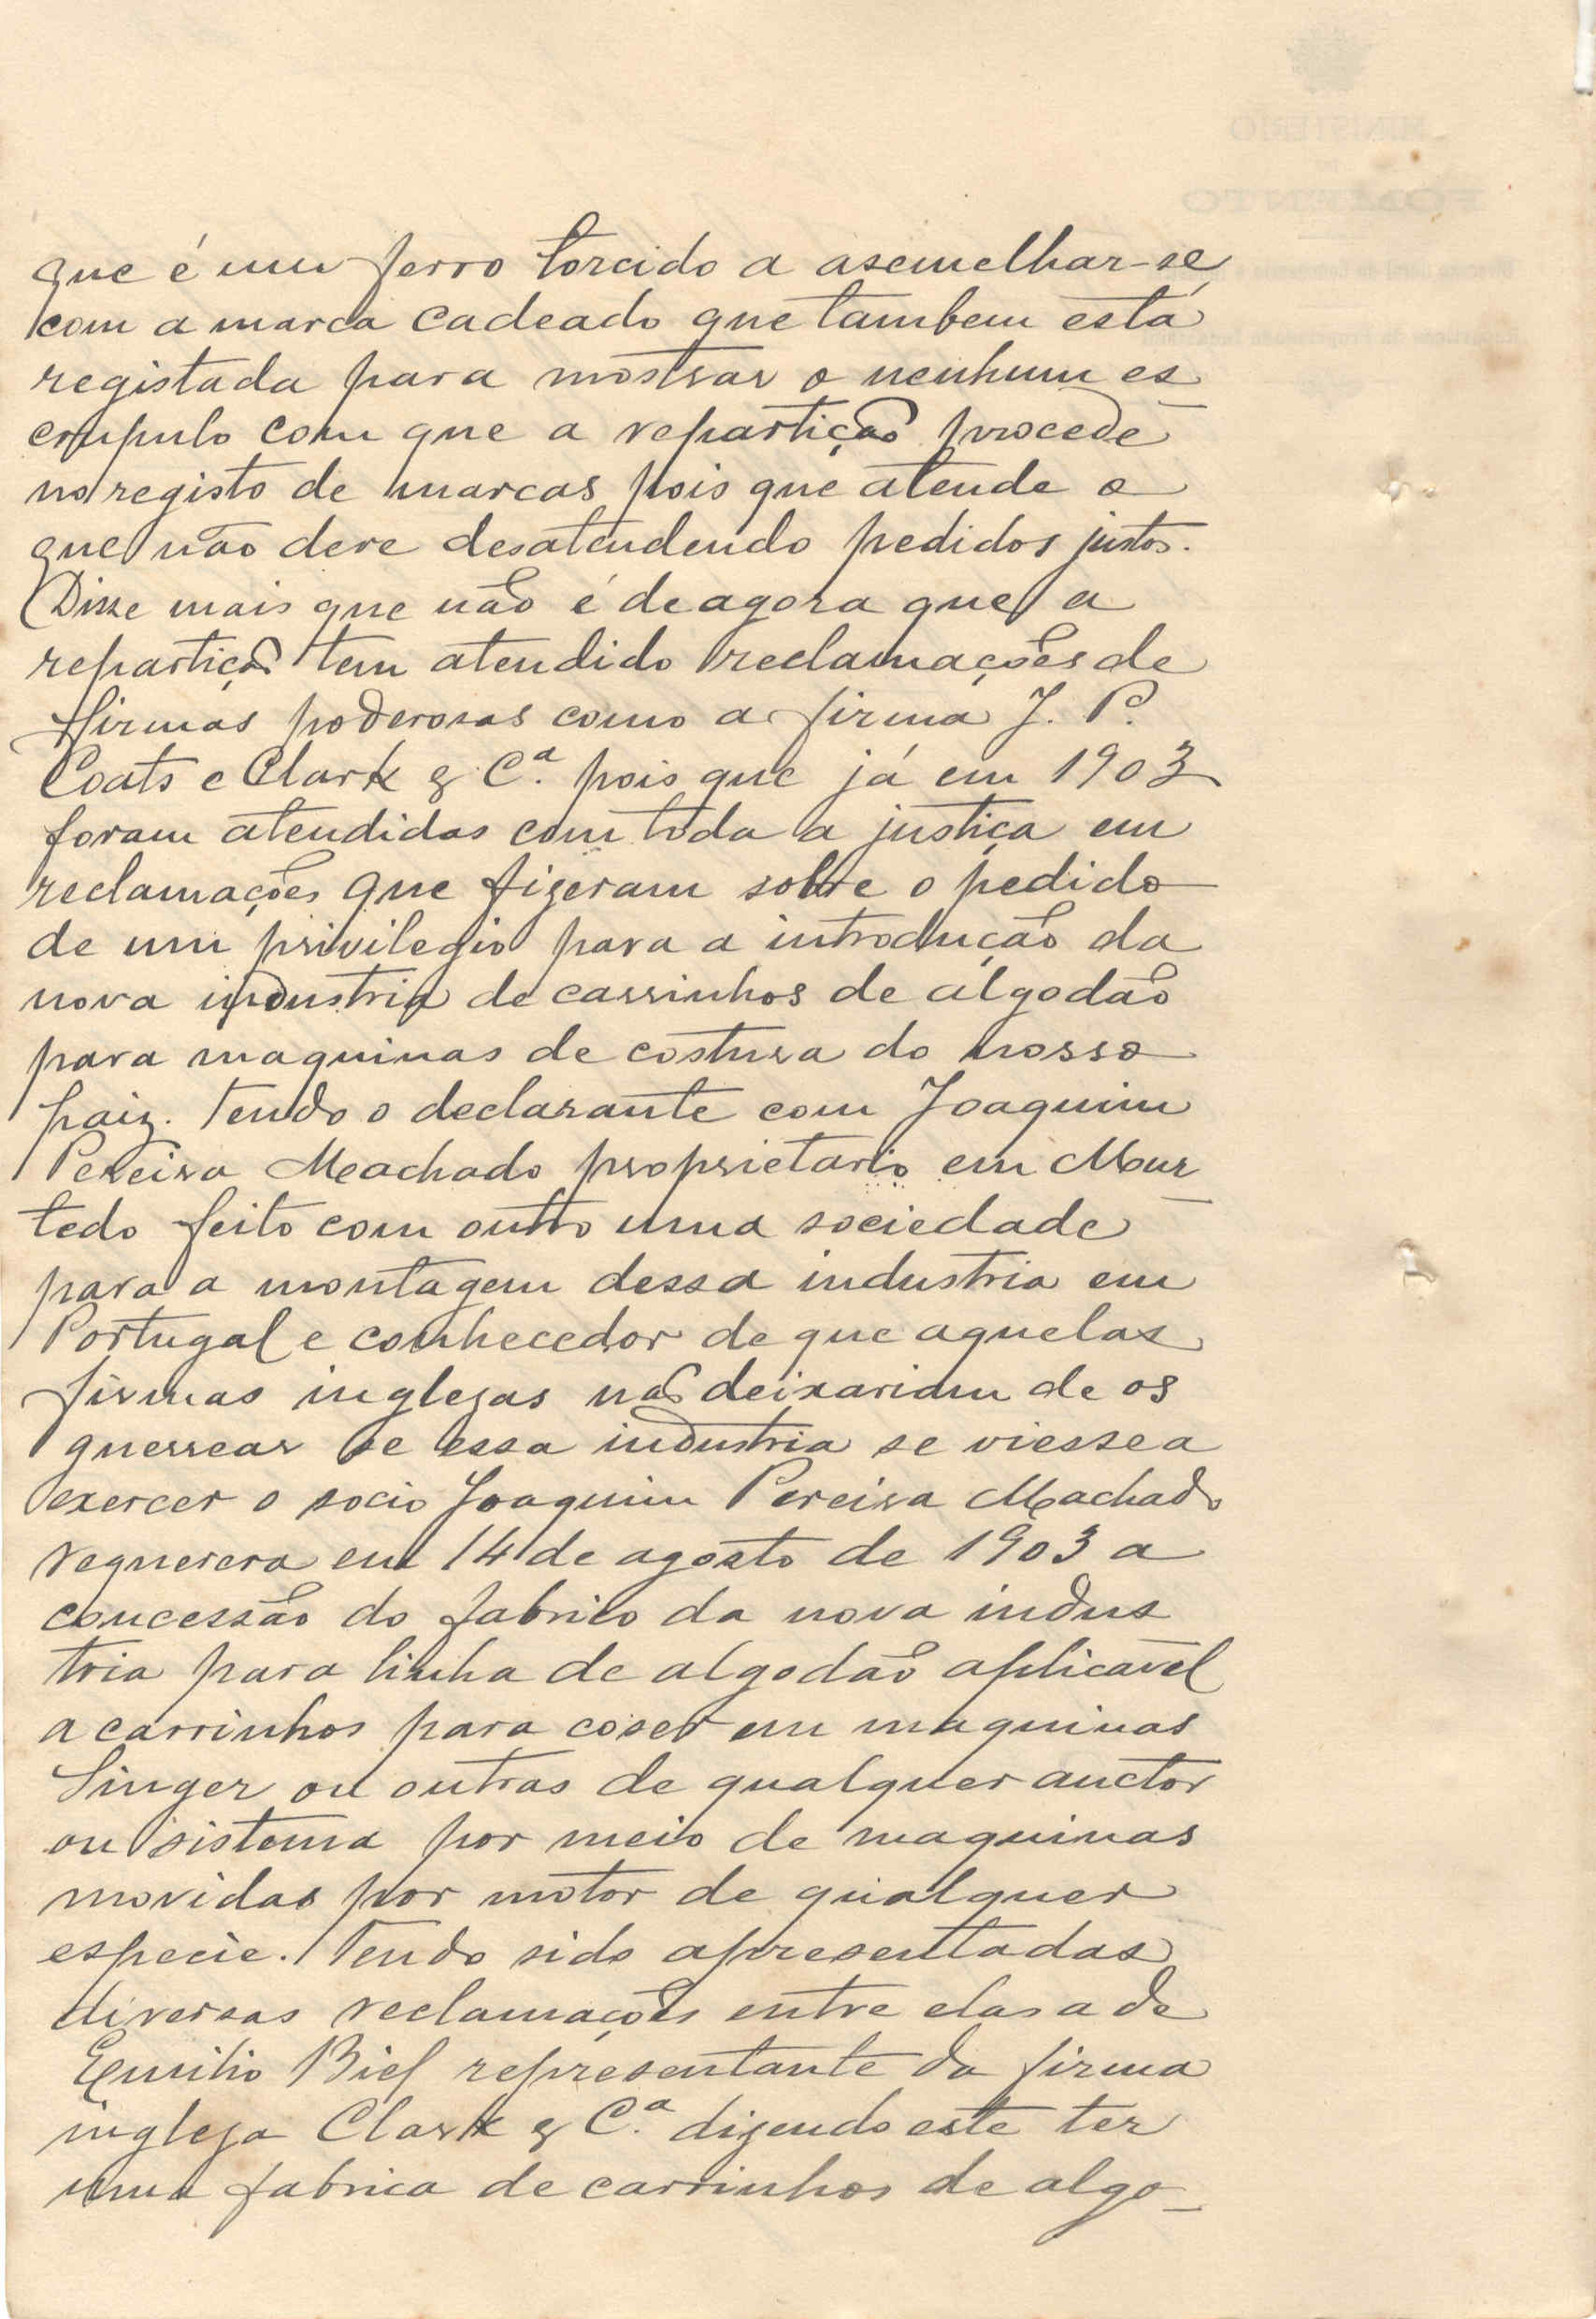 que é um ferro torcido a asemelhar-se
com a marca cadeado que tambem está
registada para mostrar o nenhum es
crupulo com que a repartição procede
no registo de marcas pois que atende o
que não deve desatendendo pedidos justos.
Disse mais que não é de agora que a
repartição tem atendido reclamações de
firmas poderosas como a firma J. P.
Coats e Clark & C.ª pois que já em 1903
foram atendidas com toda a justiça em
reclamações que fizeram sobre o pedido
de um privilegio para a introdução da
nova industria de carrinhos de algodão
para maquinas de costura do nosso
paiz. Tendo o declarante com Joaquim
Pereira Machado proprietario em Mur
tedo feito com outro uma sociedade
para a montagem dessa industria em
Portugal e conhecedor de que aquelas
firmas inglezas não deixariam de os
guerrear se essa industria se viesse a
exercer o socio Joaquim Pereira Machado
requerera em 14 de agosto de 1903 a
concessão do fabrico da nova indus
tria para linha de algodão aplicavel
a carrinhos para coser em maquinas
Singer ou outras de qualquer auctor
ou sistema por meio de maquinas
movidas por motor de qualquer
especie. Tendo sido apresentadas
diversas reclamações entre elas a de
Emilio Biel representante da firma
ingleza Clark & C.ª dizendo este ter
uma fabrica de carrinhos de algo-